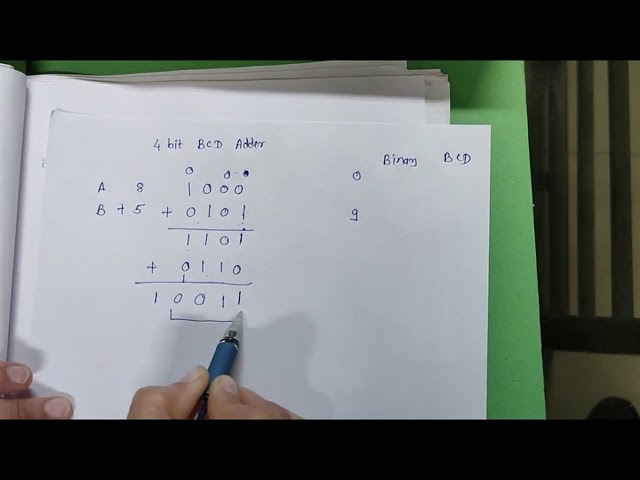 4 bit BCD Adder
Binary BCD
0 0 0
A 8 1 0 0 0
B + 5 + 0 1 0 1 9
1 1 0 1
+ 0 1 1 0
1 0 0 1 1